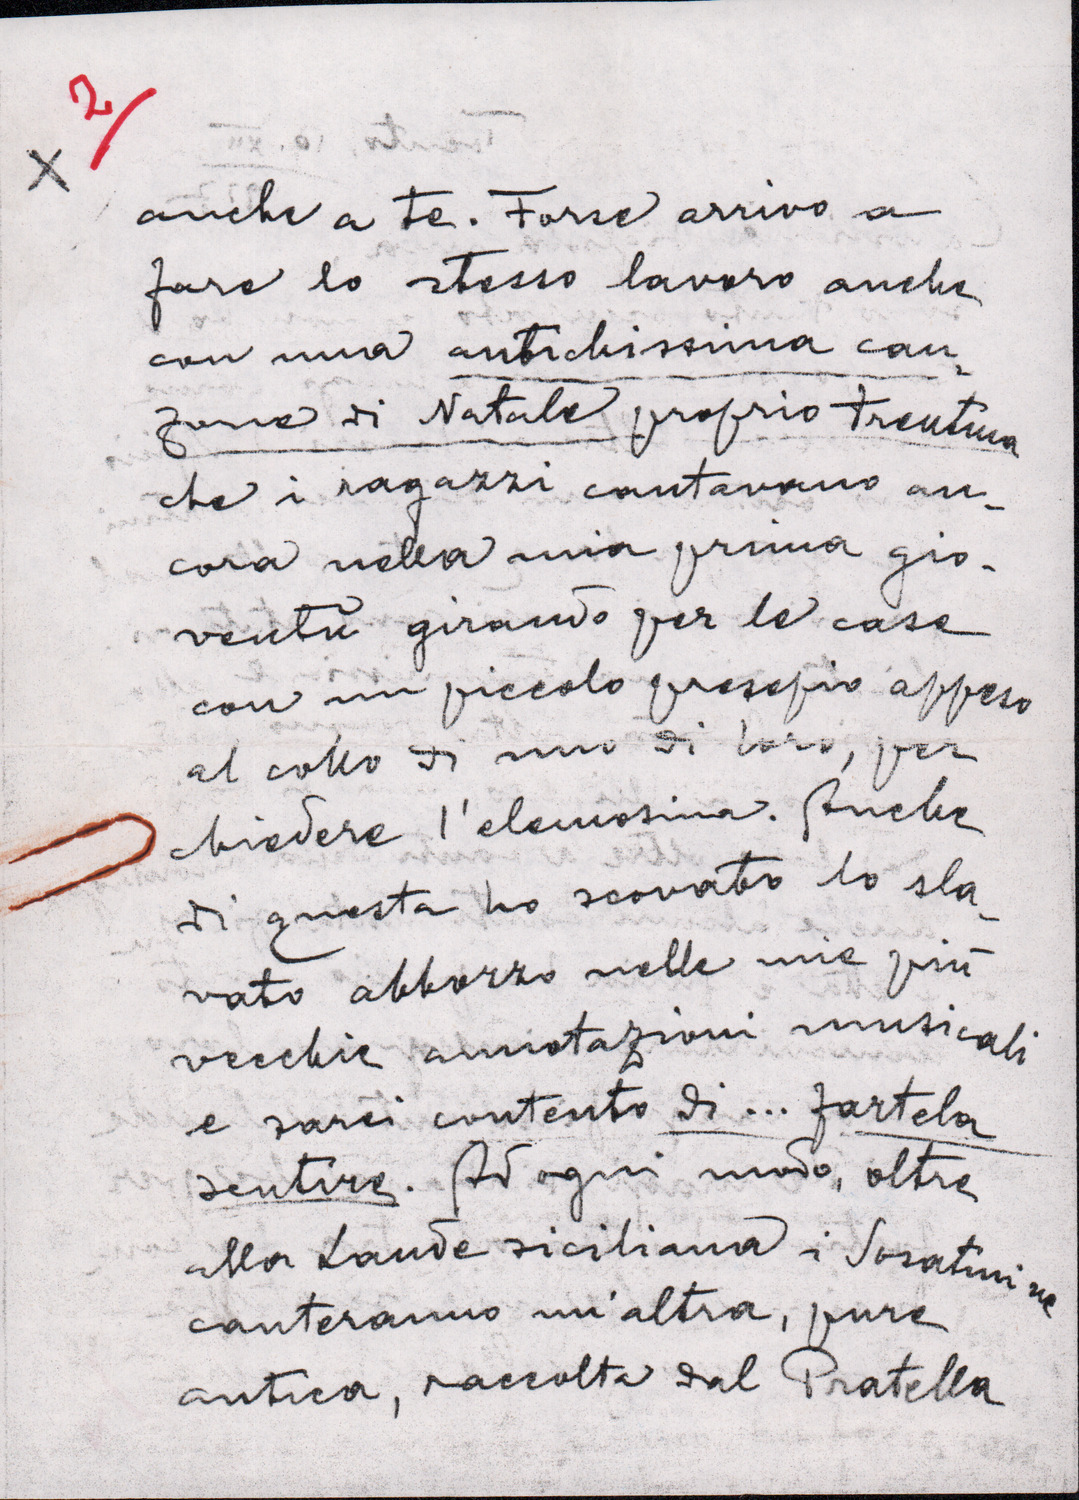 2/
X
anche a te. Forse arrivo a
fare lo stesso lavoro anche
con una antichissima can-
zone di Natale proprio trentina
che i ragazzi cantavano an-
cora nella mia prima gio-
ventù girando per le case
con un piccolo presepio appeso
al collo di uno di loro, per
chiedere l'elemosina. Anche
di questa ho scovato lo sla-
vato abbozzo nelle mie più
vecchie annotazioni musicali
e sarei contento di... fartela
sentire. Ad ogni modo, oltre
alla Laude siciliana i Sosatini ne
canteranno un'altra, pure
antica, raccolta dal Pratella